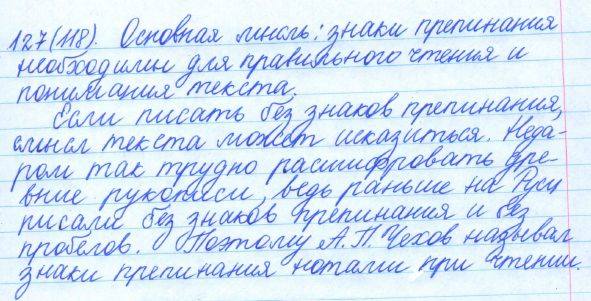 127(118). Основная мысль: знаки препинания
необходимы для правильного чтения и
понимания текста.
Если писать без знаков препинания,
смысл текста может исказиться. Неда-
ром так трудно расшифровать дре-
вние рукописи, ведь раньше на Руси
писали без знаков препинания и без
пробелов. Поэтому А.П. Чехов называл
знаки препинания нотами при чтении.